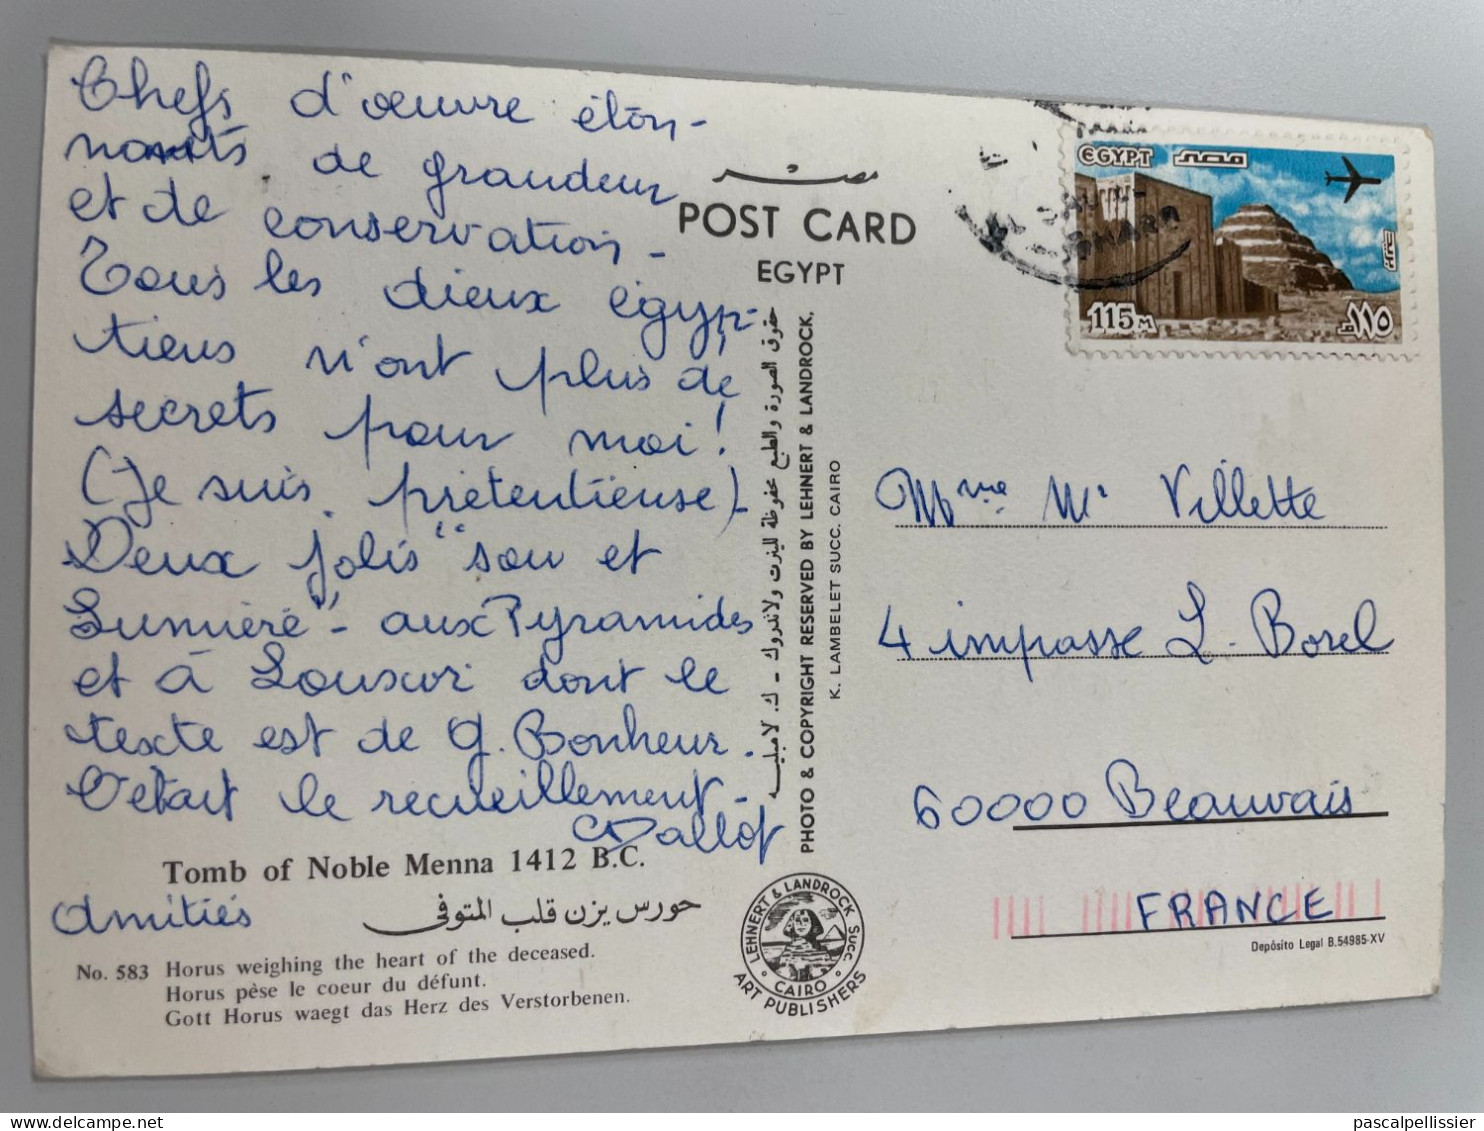 Chefs d'œuvre éton-
nants de grandeur
et de conservation -
Tous les dieux égyp-
tiens n'ont plus de
secrets pour moi!
(Je suis prétentieuse) -
Deux jolis "son et
Lumière" - aux Pyramides
et à Louxor dont le
texte est de G. Bonheur.
C'était le recueillement -
CDallot
Amitiés
Tomb of Noble Menna 1412 B.C.
حورس يزن قلب المتوفى
No. 583 Horus weighing the heart of the deceased.
Horus pèse le coeur du défunt.
Gott Horus waegt das Herz des Verstorbenen.
مصر
POST CARD
EGYPT
حقوق الصورة والطبع محفوظة للينرت ولاندروك - ك. لامبليه
PHOTO & COPYRIGHT RESERVED BY LEHNERT & LANDROCK,
K. LAMBELET SUCC. CAIRO
LEHNERT & LANDROCK SUCC.
CAIRO
ART PUBLISHERS
EGYPT مصر
115M ١١٥م
Mme M. Villette
4 impasse L. Borel
60000 Beauvais
FRANCE
Depósito Legal B.54985-XV
pascalpellissier